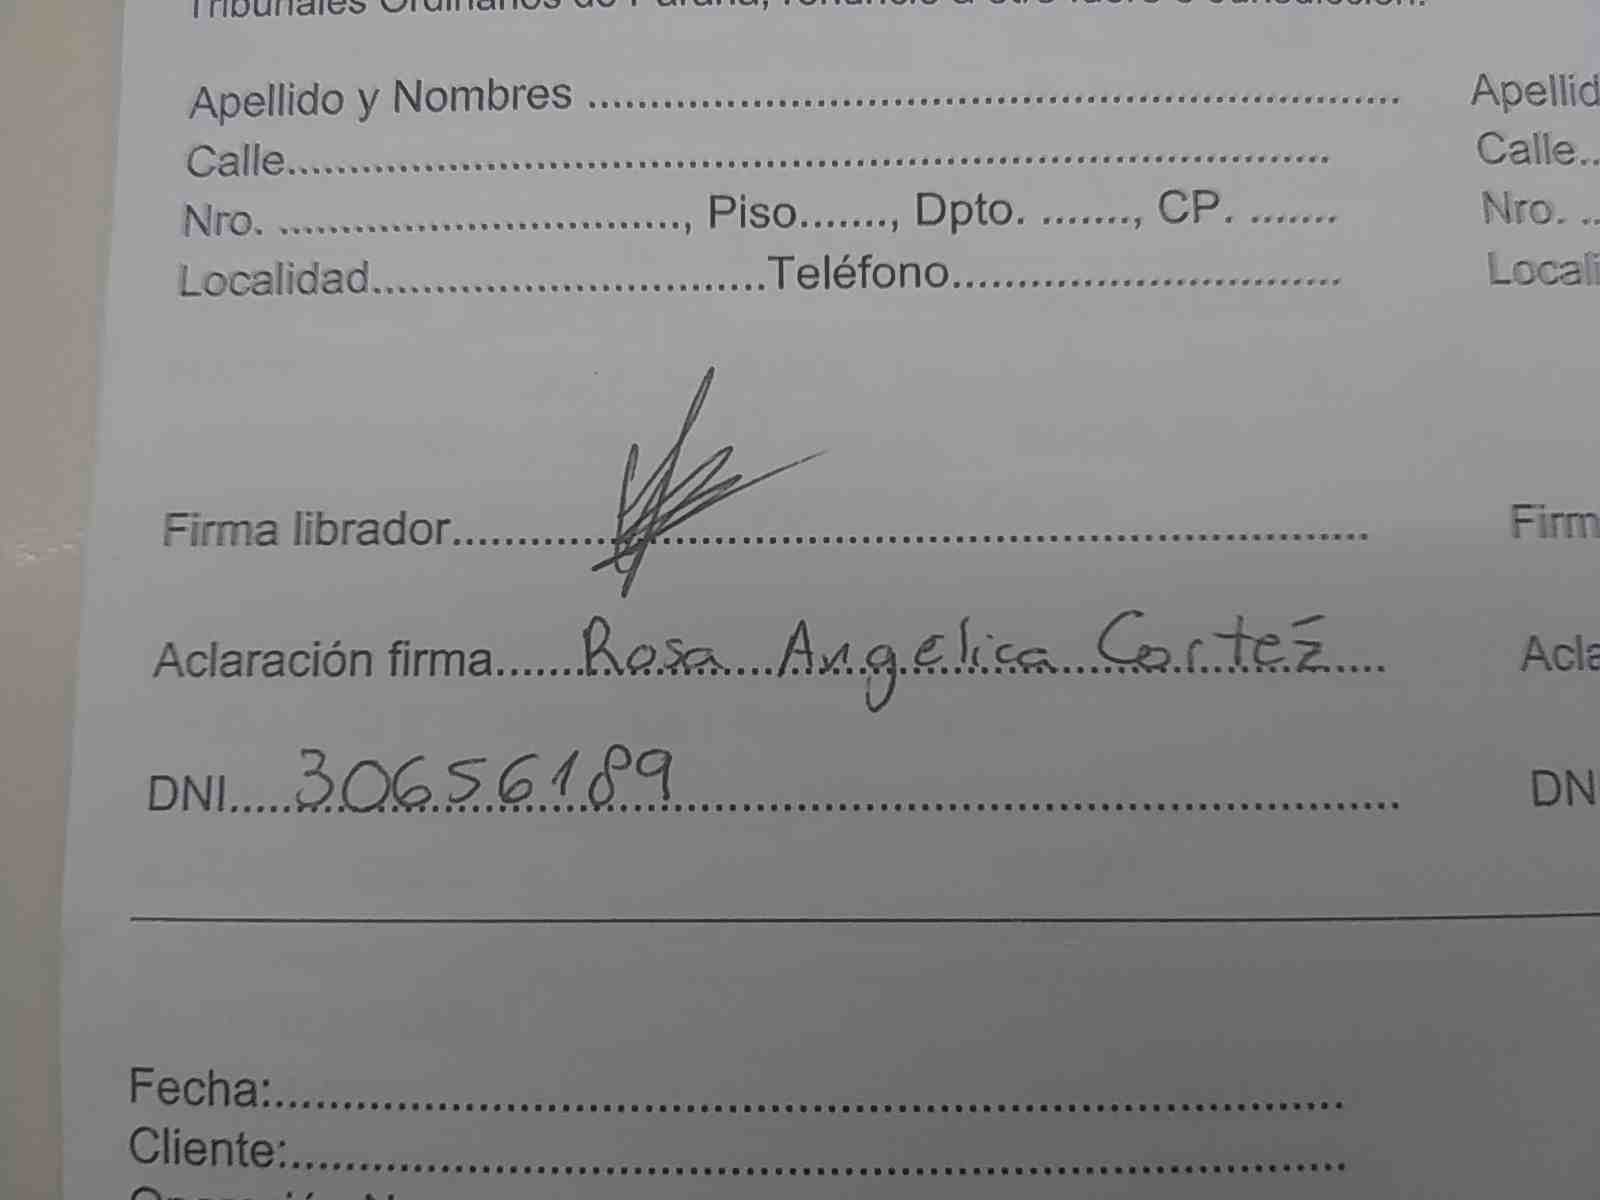 Tribunales Ordinarios de Paraná, renuncio a otro fuero o Jurisdicción.
Apellido y Nombres ........................................................ Apellid
Calle................................................................................ Calle..
Nro. ................................, Piso......., Dpto. ......., CP. ....... Nro. ..
Localidad..............................Teléfono.............................. Locali
Firma librador...................................................................... Firm
Aclaración firma......Rosa Angelica Cortez.... Acla
DNI.....30656189........................................................ DN
Fecha:................................................................................
Cliente:..............................................................................